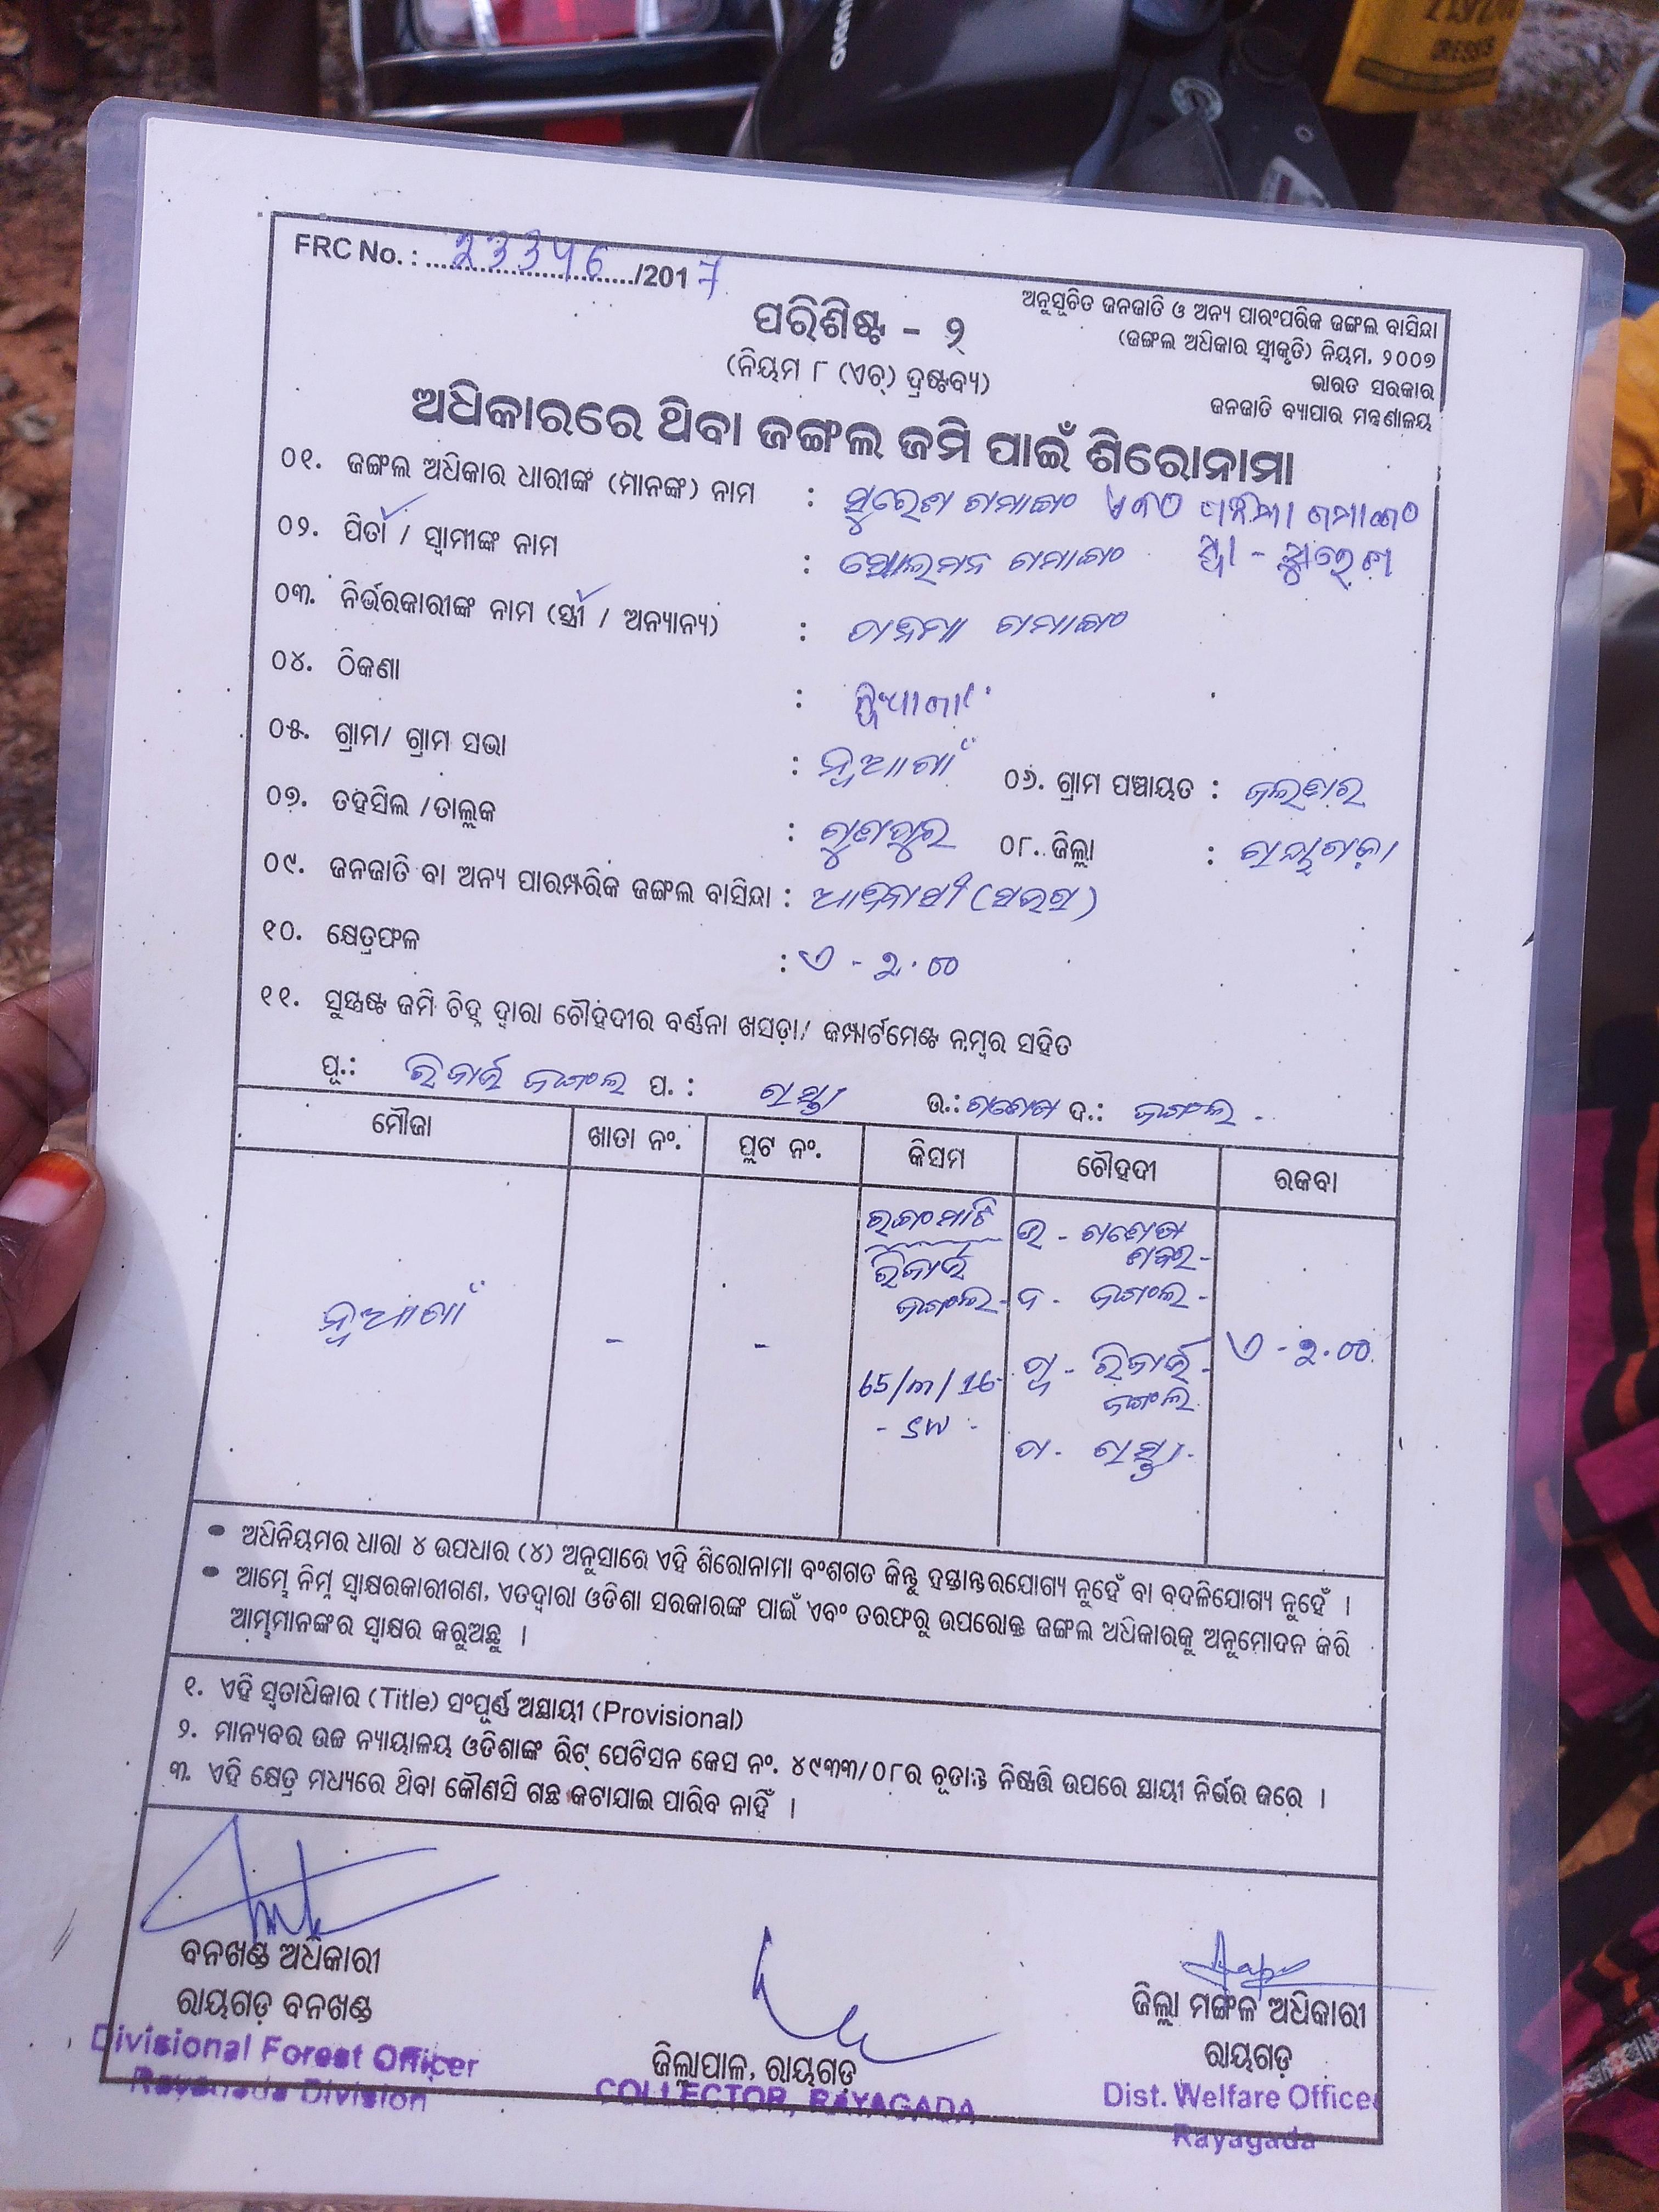 FRC No. : 23346/2017
ଅନୁସୂଚିତ ଜନଜାତି ଓ ଅନ୍ୟ ପାରଂପରିକ ଜଙ୍ଗଲ ବାସିନ୍ଦା
(ଜଙ୍ଗଲ ଅଧିକାର ସ୍ୱୀକୃତି) ନିୟମ, ୨୦୦୭
ଭାରତ ସରକାର
ଜନଜାତି ବ୍ୟାପାର ମନ୍ତ୍ରଣାଳୟ
ପରିଶିଷ୍ଟ - ୨
(ନିୟମ ୮ (ଏଚ୍) ଦ୍ରଷ୍ଟବ୍ୟ)
ଅଧିକାରରେ ଥିବା ଜଙ୍ଗଲ ଜମି ପାଇଁ ଶିରୋନାମା
୦୧. ଜଙ୍ଗଲ ଅଧିକାର ଧାରୀଙ୍କ (ମାନଙ୍କ) ନାମ : ସୁରେଶ ଗମାଙ୍ଗ
୦୨. ପିତା / ସ୍ୱାମୀଙ୍କ ନାମ : ଗମାଙ୍ଗ
୦୩. ନିର୍ଭରକାରୀଙ୍କ ନାମ (ସ୍ତ୍ରୀ / ଅନ୍ୟାନ୍ୟ) : ଗମାଙ୍ଗ
୦୪. ଠିକଣା :
୦୫. ଗ୍ରାମ/ ଗ୍ରାମ ସଭା : ନୂଆଗାଁ ୦୬. ଗ୍ରାମ ପଞ୍ଚାୟତ :
୦୭. ତହସିଲ /ତାଲୁକ : ଗୁଣୁପୁର ୦୮. ଜିଲ୍ଲା : ରାୟଗଡ଼ା
୦୯. ଜନଜାତି ବା ଅନ୍ୟ ପାରମ୍ପରିକ ଜଙ୍ଗଲ ବାସିନ୍ଦା : ଆଦିବାସୀ
୧୦. କ୍ଷେତ୍ରଫଳ : ଏ - ୨.୦୦
୧୧. ସୁସ୍ପଷ୍ଟ ଜମି ଚିହ୍ନ ଦ୍ୱାରା ଚୌହଦୀର ବର୍ଣ୍ଣନା ଖସଡ଼ା/ କମ୍ପାର୍ଟମେଣ୍ଟ ନମ୍ବର ସହିତ
ପୂ.: ରିଜାର୍ଭ ଜଙ୍ଗଲ ପ. : ରାସ୍ତା ଉ.: ଦ.: ଜଙ୍ଗଲ -
ମୌଜା ଖାତା ନଂ. ପ୍ଲଟ ନଂ. କିସମ ଚୌହଦୀ ରକବା
ନୂଆଗାଁ - - ରିଜାର୍ଭ ଜଙ୍ଗଲ - 65/m/16 - SW -
ଦ - ଜଙ୍ଗଲ -
ପୂ - ରିଜାର୍ଭ ଜଙ୍ଗଲ
ପ - ରାସ୍ତା -
ଏ - ୨.୦୦
• ଅଧିନିୟମର ଧାରା ୪ ଉପଧାର (୪) ଅନୁସାରେ ଏହି ଶିରୋନାମା ବଂଶଗତ କିନ୍ତୁ ହସ୍ତାନ୍ତରଯୋଗ୍ୟ ନୁହେଁ ବା ବଦଳିଯୋଗ୍ୟ ନୁହେଁ ।
• ଆମ୍ଭେ ନିମ୍ନ ସ୍ୱାକ୍ଷରକାରୀଗଣ, ଏତଦ୍ୱାରା ଓଡିଶା ସରକାରଙ୍କ ପାଇଁ ଏବଂ ତରଫରୁ ଉପରୋକ୍ତ ଜଙ୍ଗଲ ଅଧିକାରକୁ ଅନୁମୋଦନ କରି
ଆମ୍ଭମାନଙ୍କର ସ୍ୱାକ୍ଷର କରୁଅଛୁ ।
୧. ଏହି ସ୍ୱତାଧିକାର (Title) ସଂପୂର୍ଣ୍ଣ ଅସ୍ଥାୟୀ (Provisional)
୨. ମାନ୍ୟବର ଉଚ୍ଚ ନ୍ୟାୟାଳୟ ଓଡିଶାଙ୍କ ରିଟ୍ ପେଟିସନ କେସ ନଂ. ୪୯୩୩/୦୮ର ଚୂଡାନ୍ତ ନିଷ୍ପତ୍ତି ଉପରେ ସ୍ଥାୟୀ ନିର୍ଭର କରେ ।
୩. ଏହି କ୍ଷେତ୍ର ମଧ୍ୟରେ ଥିବା କୌଣସି ଗଛ କଟାଯାଇ ପାରିବ ନାହିଁ ।
ବନଖଣ୍ଡ ଅଧିକାରୀ
ରାୟଗଡ଼ ବନଖଣ୍ଡ
Divisional Forest Officer
Rayagada Division
ଜିଲ୍ଲାପାଳ, ରାୟଗଡ଼
COLLECTOR, RAYAGADA
ଜିଲ୍ଲା ମଙ୍ଗଳ ଅଧିକାରୀ
ରାୟଗଡ଼
Dist. Welfare Officer
Rayagada